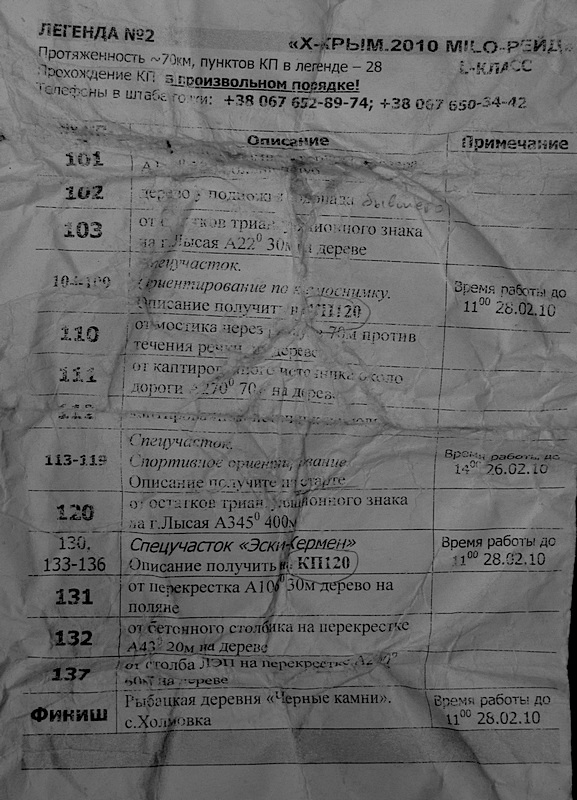 ЛЕГЕНДА №2
«X-КРЫМ.2010 MILO-РЕЙД»
Протяженность ~70км, пунктов КП в легенде – 28
L-КЛАСС
Прохождение КП в произвольном порядке!
Телефоны в штабе +38 067 652-89-74; +38 067 650-34-42
Описание Примечание
101
102 дерево у подножья бывшего
103 от остатков триангуляционного знака
на г.Лысая А22⁰ 30м на дереве
104-109 Спецучасток.
Ориентирование по космоснимку.
Описание получить на КП120
Время работы до
11⁰⁰ 28.02.10
110 от мостика через речку 70м против
течения речки на дереве
111 от каптированного источника около
дороги А270⁰ 70м на дереве
113-119 Спецучасток.
Спортивное ориентирование
Описание получите на старте
Время работы до
14⁰⁰ 26.02.10
120 от остатков триангуляционного знака
на г.Лысая А345⁰ 400м
130,
133-136 Спецучасток «Эски-Кермен»
Описание получить на КП120
Время работы до
11⁰⁰ 28.02.10
131 от перекрестка 30м дерево на
поляне
132 от бетонного столбика на перекрестке
А43⁰ 20м на дереве
137 от столба ЛЭП на перекрестке
на дереве
Финиш Рыбацкая деревня «Черные камни».
с.Холмовка
Время работы до
11⁰⁰ 28.02.10